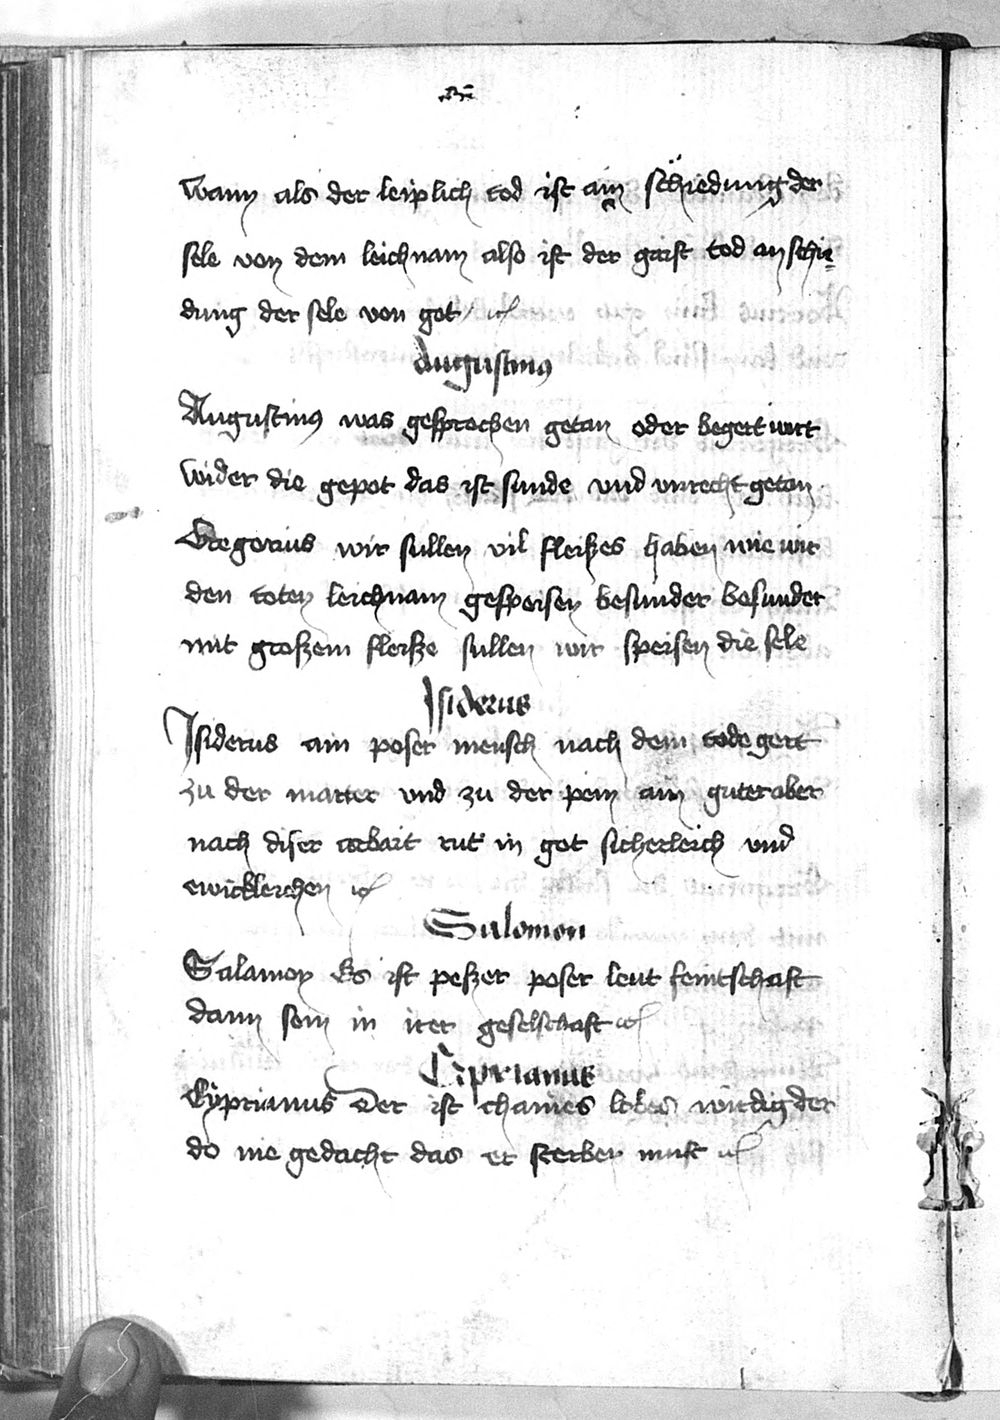 wann als der leiplich tod ist ain schiedung der
sele von dem leichnam also ist der gaist tod an schie-
dung der sele von got
Augustinus
Augustinus was gesprochen getan oder begert wirt
wider die gepot das ist sunde vnd vnrecht getan
Gregorius wir sullen vil fleiszes haben wie wir
den toten leichnam gespeisen besunder besunder
mit groszem fleisze sullen wir speisen die sele
Isiderus
Isiderus ain poser mensch nach dem tode gert
zu der marter vnd zu der pein ain guter aber
nach diser arbait rut in got sicherleich vnd
ewickleichen
Salomon
Salamon Es ist peszer poser leut feintschaft
dann sein in irer geselschaft
Ciprianus
Cyprianus Der ist chaines lobes wirdig der
do nie gedacht das er sterben musz